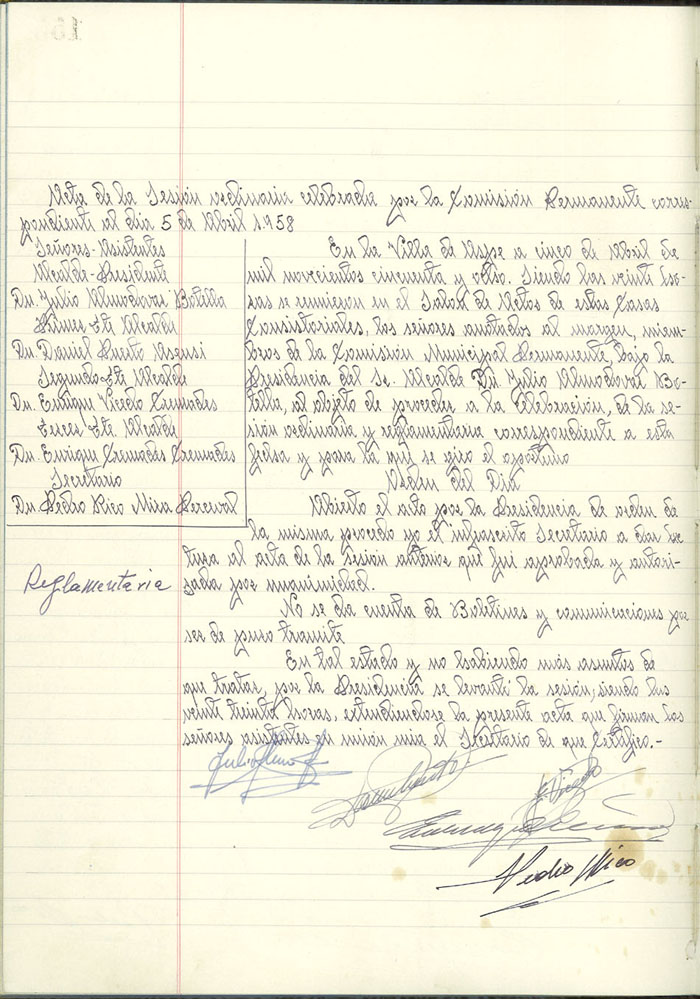 Acta de la Sesión ordinaria celebrada por la Comisión Permanente corres-
pondiente al día 5 de Abril 1.958
Señores Asistentes
Alcalde-Presidente
Dn. Julio Almodovar Botella
Primer Tte Alcalde
Dn. Daniel Puerto Asensi
Segundo Tte Alcalde
Dn. Enrique Vicedo Cremades
Tercer Tte. Alcalde
Dn. Enrique Cremades Cremades
Secretario
Dn. Pedro Rico Mira Perceval
En la Villa de Aspe a cinco de Abril de
mil novecientos cincuenta y ocho. Siendo las veinte ho-
ras se reunieron en el Salon de Actos de estas Casas
Consistoriales, los señores anotados al margen, miem-
bros de la Comisión Municipal Permanente, bajo la
Presidencia del Sr. Alcalde Dn Julio Almodovar Bo-
tella, al objeto de proceder a la Celebración, de la se-
sión ordinaria y reglamentaria correspondiente a esta
fecha y para la que se giro el oportuno
Orden del Dia
Abierto el acto por la Presidencia de orden de
la misma procedo yo el infrascrito Secretario a dar lec-
tura al acta de la sesión anterior que fue aprobada y autori-
zada por unanimidad.
Reglamentaria
No se da cuenta de Boletines y comunicaciones por
ser de puro tramite
En tal estado y no habiendo más asuntos de
que tratar, por la Presidencia se levantó la sesión, siendo las
veinte treinta horas, extendiendose la presente acta que firman los
señores asistentes en unión mia el Secretario de que Certifico.-
Julio Almo
Daniel Puerto
E Vicedo
Enrique Crem
Pedro Rico